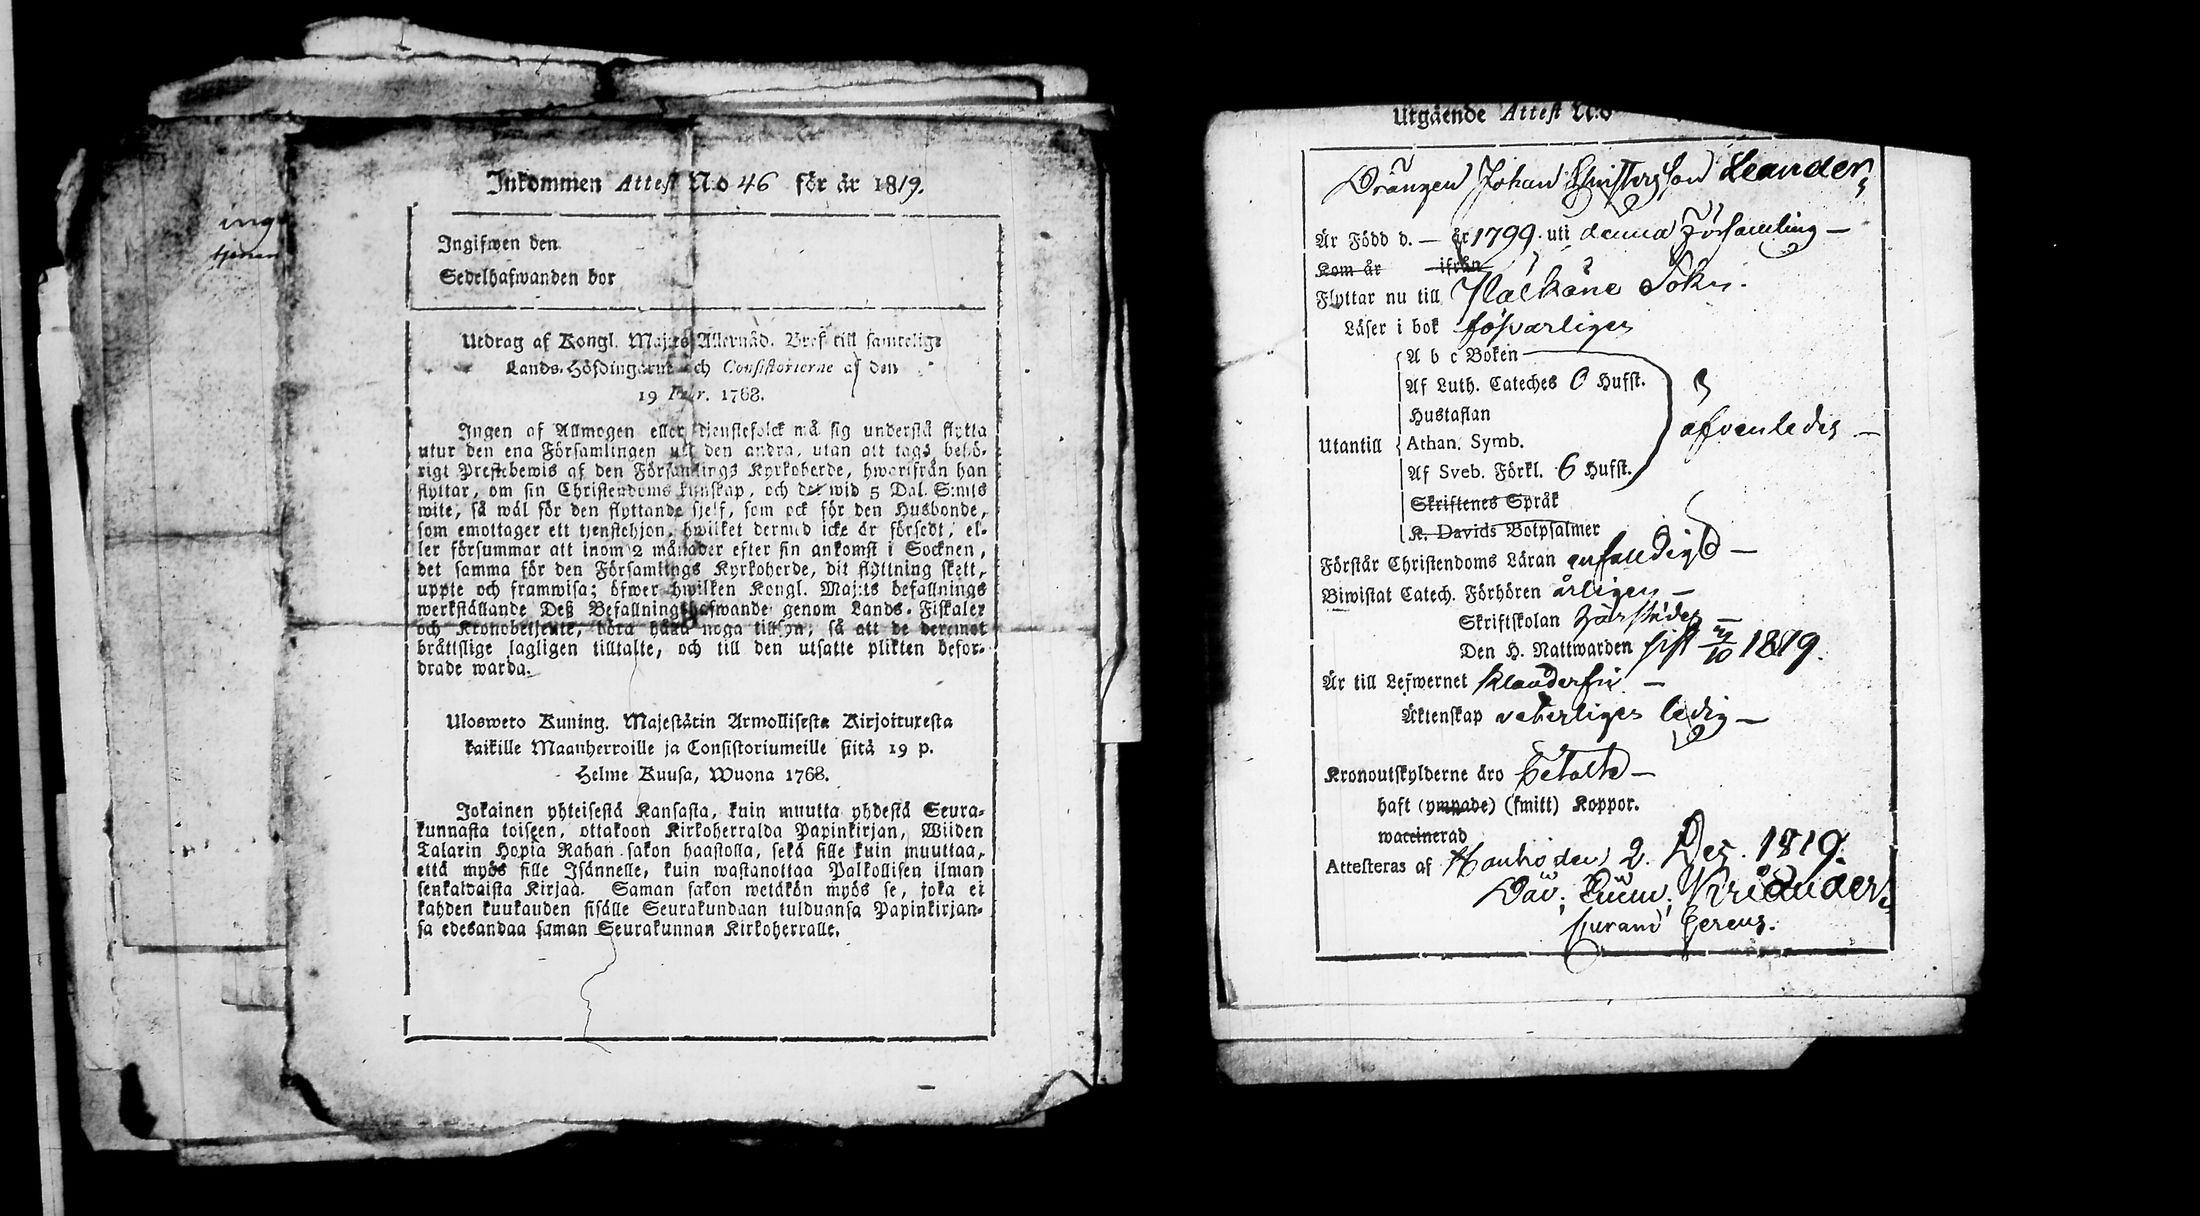 ing
tjenan
Inkommen Attest N:o 46 för år 1819.
Ingifwen den
Sedelhafwanden bor
Utdrag af Kongl. Maj:ts Allernåd. Bref till samtelige
Lands-Höfdingarne och Consistorierne af den
19 Febr. 1768.
Ingen af Allmogen eller tjenstefolck må sig understå flytta
utur den ena Församlingen uti den andra, utan att taga behö-
rigt Prestebewis af den Församlings Kyrkoherde, hwarifrån han
flyttar, om sin Christendoms kunskap, och det wid 5 Dal. S:mts
wite, så wäl för den flyttande sjelf, som ock för den Husbonde,
som emottager ett tjenstehjon, hwilket dermed icke är försedt, el-
ler försummar att inom 2 månader efter sin ankomst i Socknen,
det samma för den Församlings Kyrkoherde, dit flyttning skett,
uppte och framwisa; öfwer hwilken Kongl. Maj:ts befallnings
werkställande Deß Befallningshafwande genom Lands-Fiskaler
och Kronobetjente, böra hafwa noga tillsyn, så att de deremot
bråttslige lagligen tilltalte, och till den utsatte plikten befor-
drade warda.
Ulosweto Kuning. Majestätin Armollisesta Kirjoituxesta
kaikille Maanherroille ja Consistoriumeille siitä 19 p.
Helme Kuusa, Wuona 1768.
Jokainen yhteisestä Kansasta, kuin muutta yhdestä Seura-
kunnasta toiseen, ottakoon Kirkoherralda Papinkirjan, Wiiden
Talarin Hopia Rahan sakon haastolla, sekä sille kuin muuttaa,
että myös sille Isännelle, kuin wastanottaa Palkollisen ilman
senkaldaista Kirjaa. Saman sakon wetäkön myös se, joka ei
kahden kuukauden sisälle Seurakundaan tulduansa Papinkirjan-
sa edesandaa saman Seurakunnan Kirkoherralle.
Utgående Attest N:o
Drängen Johan Christersson Leander,
Är Född d. — år 1799. uti denna Församling —
Kom år ifrån
Flyttar nu till Pälkäne Sokn.
Läser i bok försvarligen
A b c Boken
Af Luth. Cateches 6 Hufst.
Hustaflan
Utantill Athan. Symb. äfvenledes —
Af Sveb. Förkl. 6 Hufst.
Skriftenes Språk
K. Davids Botpsalmer
Förstår Christendoms Läran enfaldigt —
Biwistat Catech. Förhören årligen —
Skriftskolan härstädes —
Den H. Nattwarden sist 1819.
Är till Lefwernet klanderfri —
Äktenskap veterligen ledig —
Kronoutskylderne äro betalte —
haft (ympade) (smitt) Koppor.
waccinerad
Attesteras af Hauho den 2. Dec. 1819.
Dav. Em. Kriander.
curam gerens.